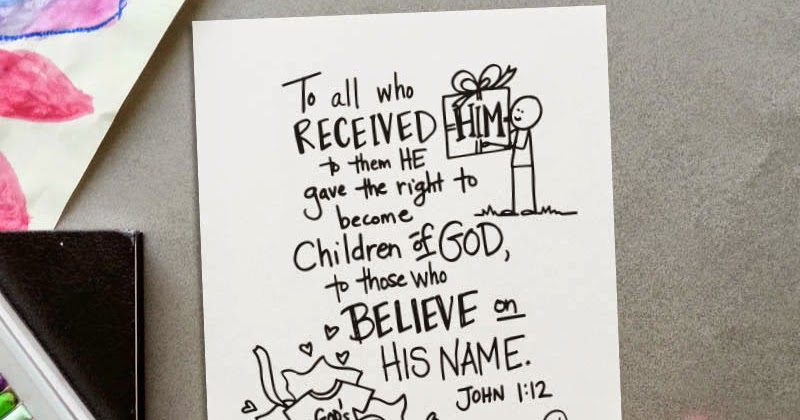 To all who
RECEIVED HIM
to them HE
gave the right to
become
Children of GOD,
to those who
BELIEVE on
HIS NAME.
JOHN 1:12
GOD'S